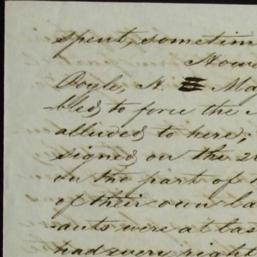 spent, sometim
Howe
Boyle, H. Ma
bled to force the
alluded to here;
signed on the 2
on the part of
of their own ba
ants were at las
had every right